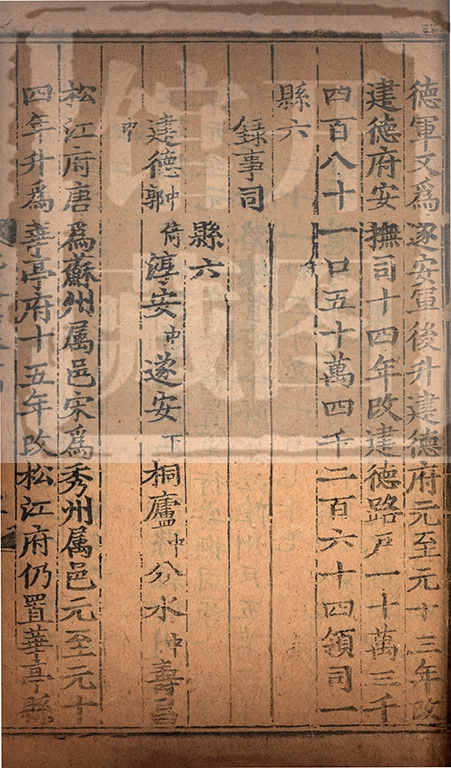 德軍又為遂安軍後升建德府元至元十三年改
建德府安撫司十四年改建德路戶一十萬三千
四百八十一口五十萬四千二百六十四領司一
縣六
録事司
縣六
建德中倚郭淳安中遂安下桐廬中分水中壽昌
中
松江府唐為蘇州属邑宋為秀州属邑元至元十
四年升為華亭府十五年改松江府仍置華亭縣